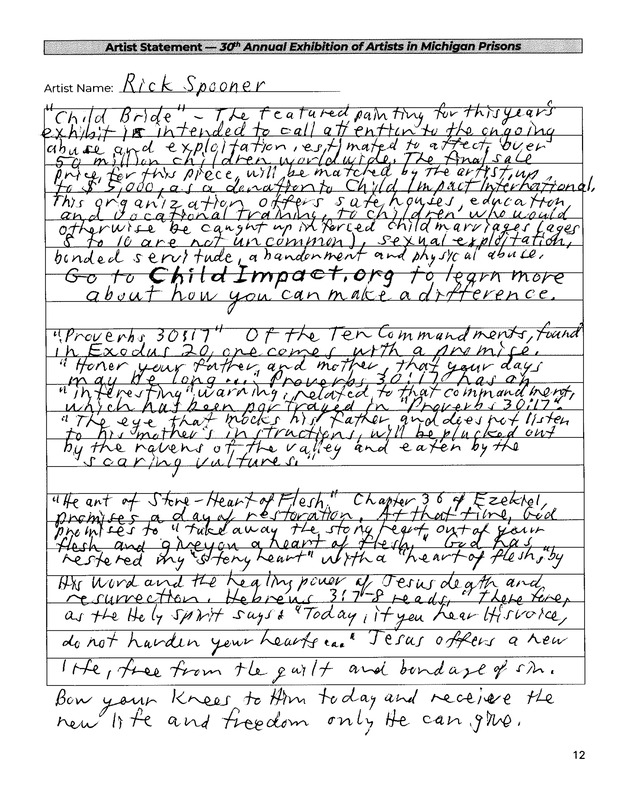 Artist Statement — 30th Annual Exhibition of Artists in Michigan Prisons
Artist Name: Rick Spooner
"Child Bride" - The featured painting for this year's
exhibit is intended to call attention to the ongoing
abuse and exploitation, estimated to affect, over
50 million children worldwide. The final sale
price, for this piece, will be matched by the artist, up
to $5,000, as a donation to Child Impact International.
This organization offers safe houses, education,
and vocational training, to children who would
otherwise be caught up in forced child marriages (ages
8 to 10 are not uncommon), sexual exploitation,
bonded servitude, abandonment and physical abuse.
Go to ChildImpact.org to learn more
about how you can make a difference.
"Proverbs 30:17" Of the Ten Commandments, found
in Exodus 20, one comes with a promise.
"Honor your father and mother, that your days
may be long...." Proverbs 30:17 has an
"interesting" warning, related to that commandment,
which has been portrayed in "Proverbs 30:17".
"The eye that mocks his father, and does not listen
to his mother's instructions, will be plucked out
by the ravens of the valley and eaten by the
soaring vultures."
"Heart of Stone-Heart of Flesh," Chapter 36 of Ezekiel,
promises a day of restoration. At that time, God
promises to "take away the stony heart out of your
flesh and give you a heart of flesh." God has
restored my "stony heart" with a "heart of flesh," by
His Word and the healing power of Jesus death and
resurrection. Hebrews 3:7-8 reads, "Therefore,
as the Holy Spirit says: "Today, if you hear His voice,
do not harden your hearts..." Jesus offers a new
life, free from the guilt and bondage of sin.
Bow your knees to Him today and receive the
new life and freedom only He can give.
12